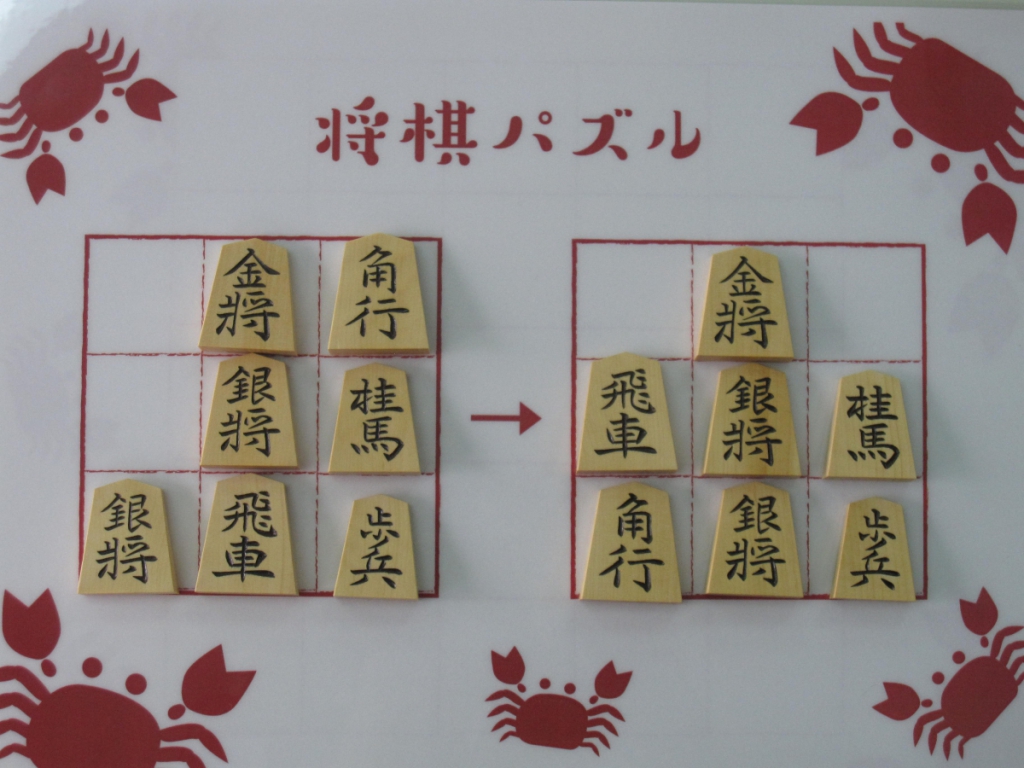 将棋パズル
金将
角行
銀将
桂馬
銀将
飛車
歩兵
金将
飛車
銀将
桂馬
角行
銀将
歩兵